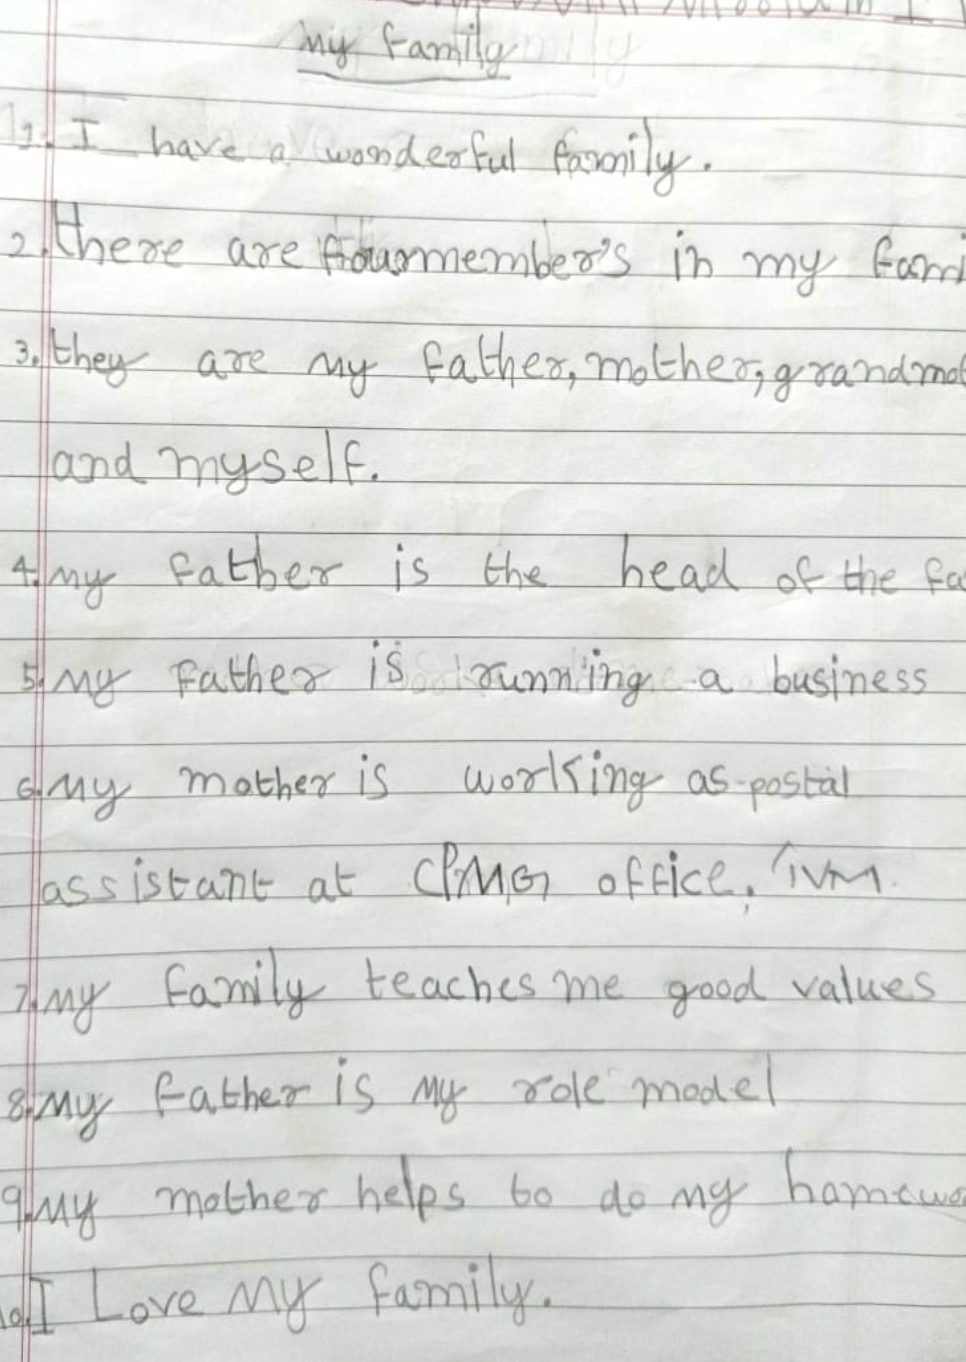 my family
1. I have a wonderful family.
2. there are four member's in my fami
3. they are my father, mother, grandmot
and myself.
4. my father is the head of the fa
5. my father is running a business
6. my mother is working as postal
assistant at CPMG office, TVM.
7. my family teaches me good values
8. my father is my role model
9. my mother helps to do my homewo
10. I Love my family.